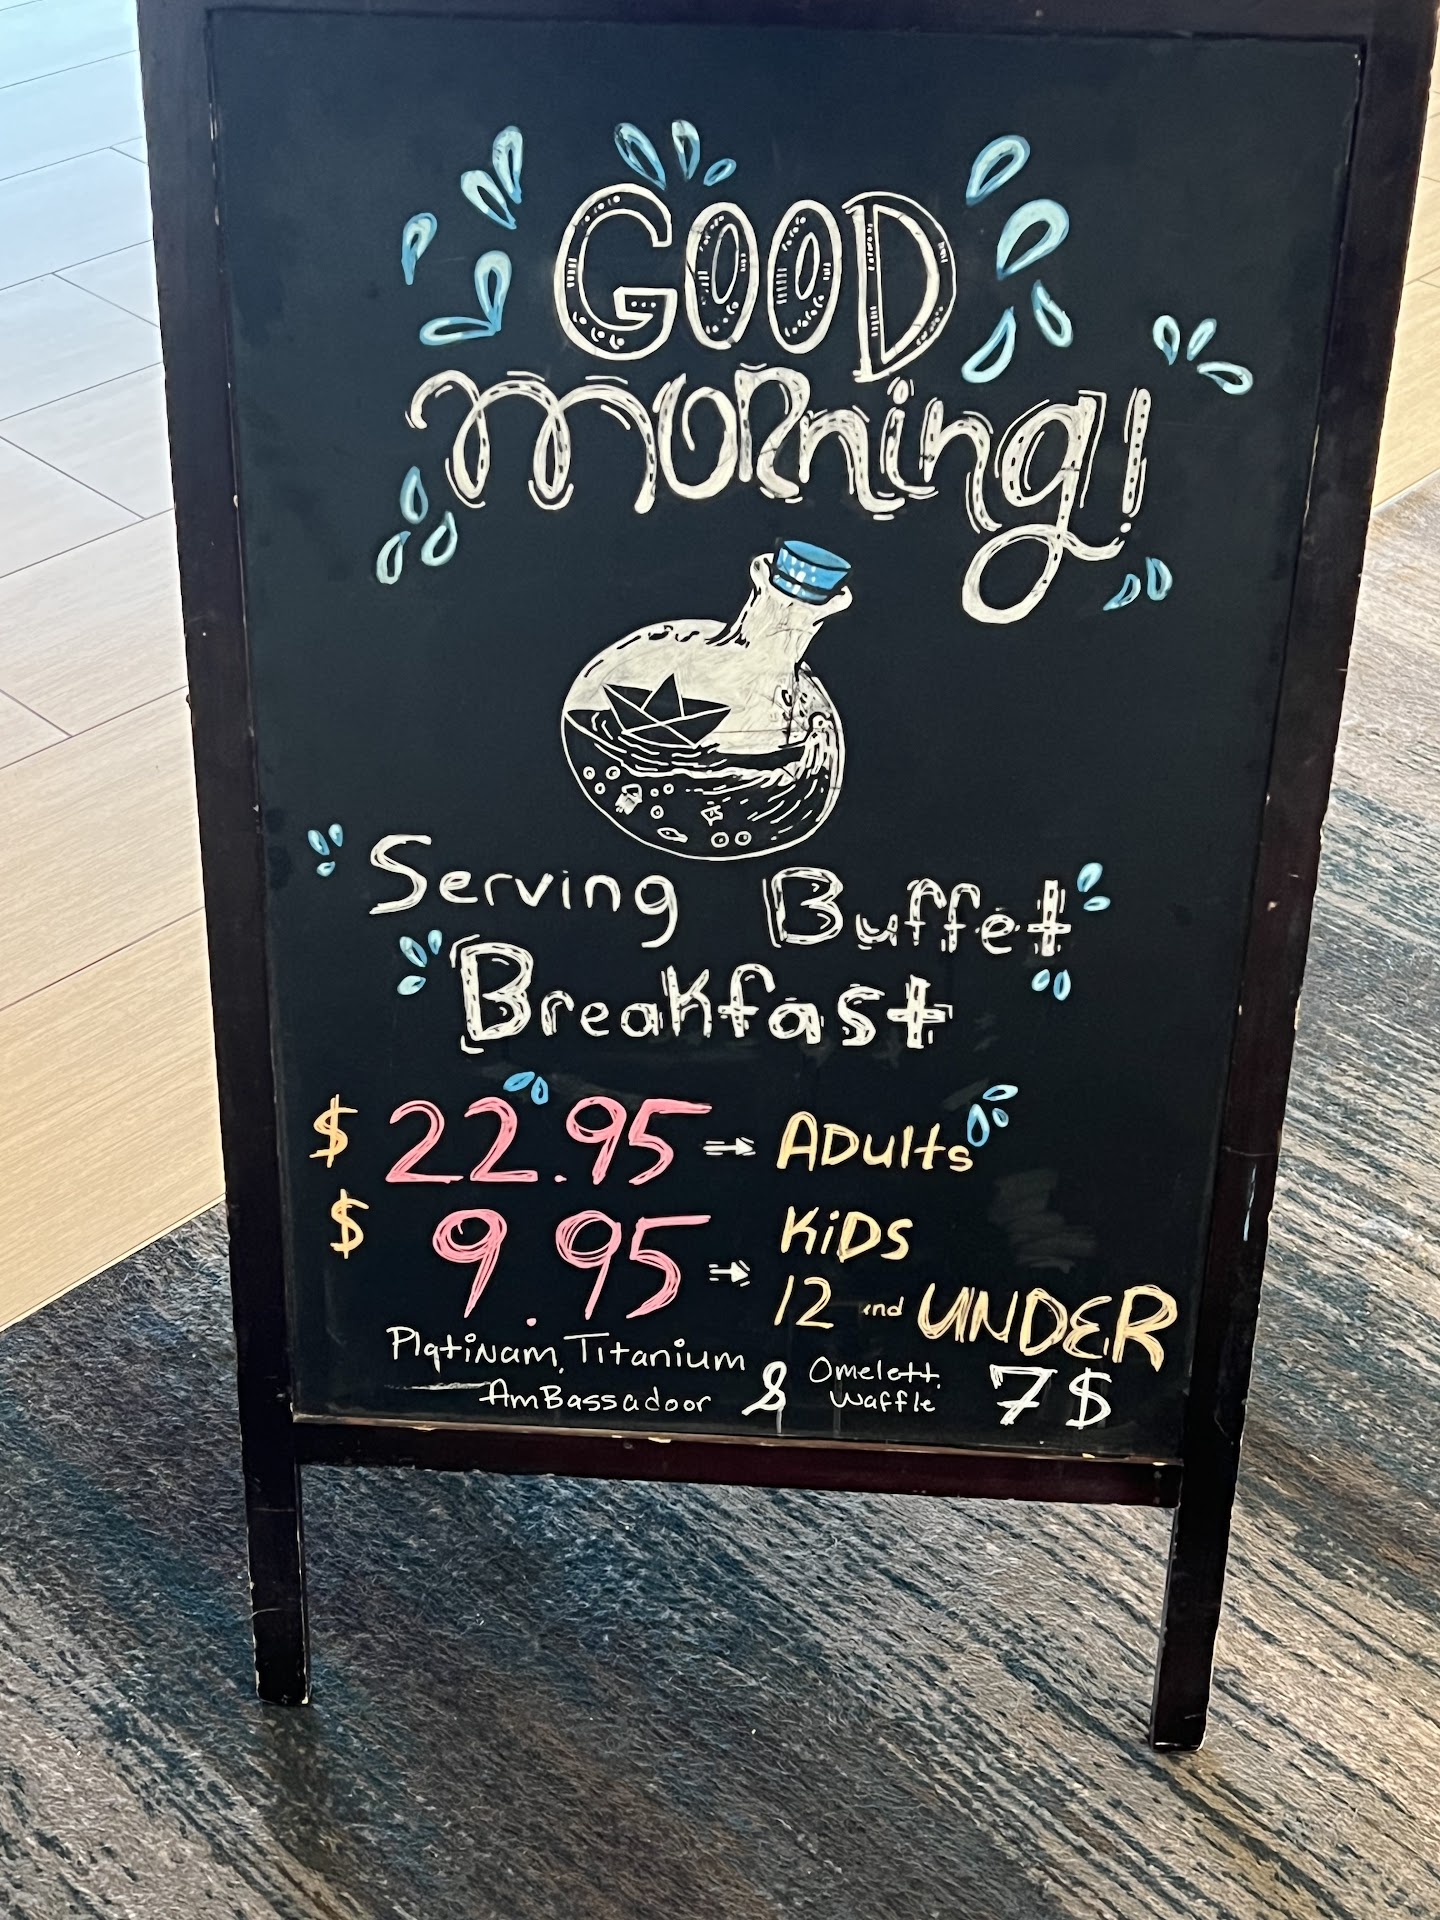 GOOD
morning!
Serving Buffet
Breakfast
$ 22.95 → ADults
$ 9.95 → KiDS
12 and UNDER
Platinam, Titanium
AmBassadoor & Omelett. Waffle 7$